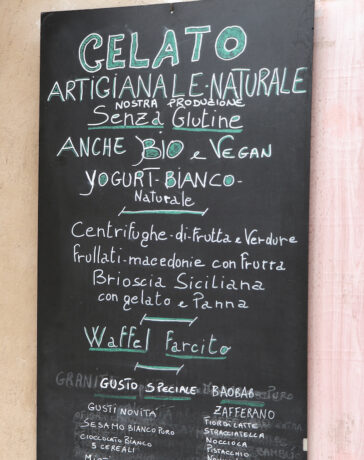 GELATO
ARTIGIANALE-NATURALE
NOSTRA PRODUZIONE
Senza Glutine
ANCHE BIO e VEGAN
YOGURT-BIANCO-
Naturale
Centrifughe-di-Frutta e Verdure
Frullati-macedonie con Frutta
Brioscia Siciliana
con gelato e Panna
Waffel Farcito
GUSTO SPECIALE BAOBAB
GUSTI NOVITÀ
SESAMO BIANCO PURO
CIOCCOLATO BIANCO
5 CEREALI
ZAFFERANO
FIORDILATTE
STRACCIATELLA
NOCCIOLA
PISTACCHIO